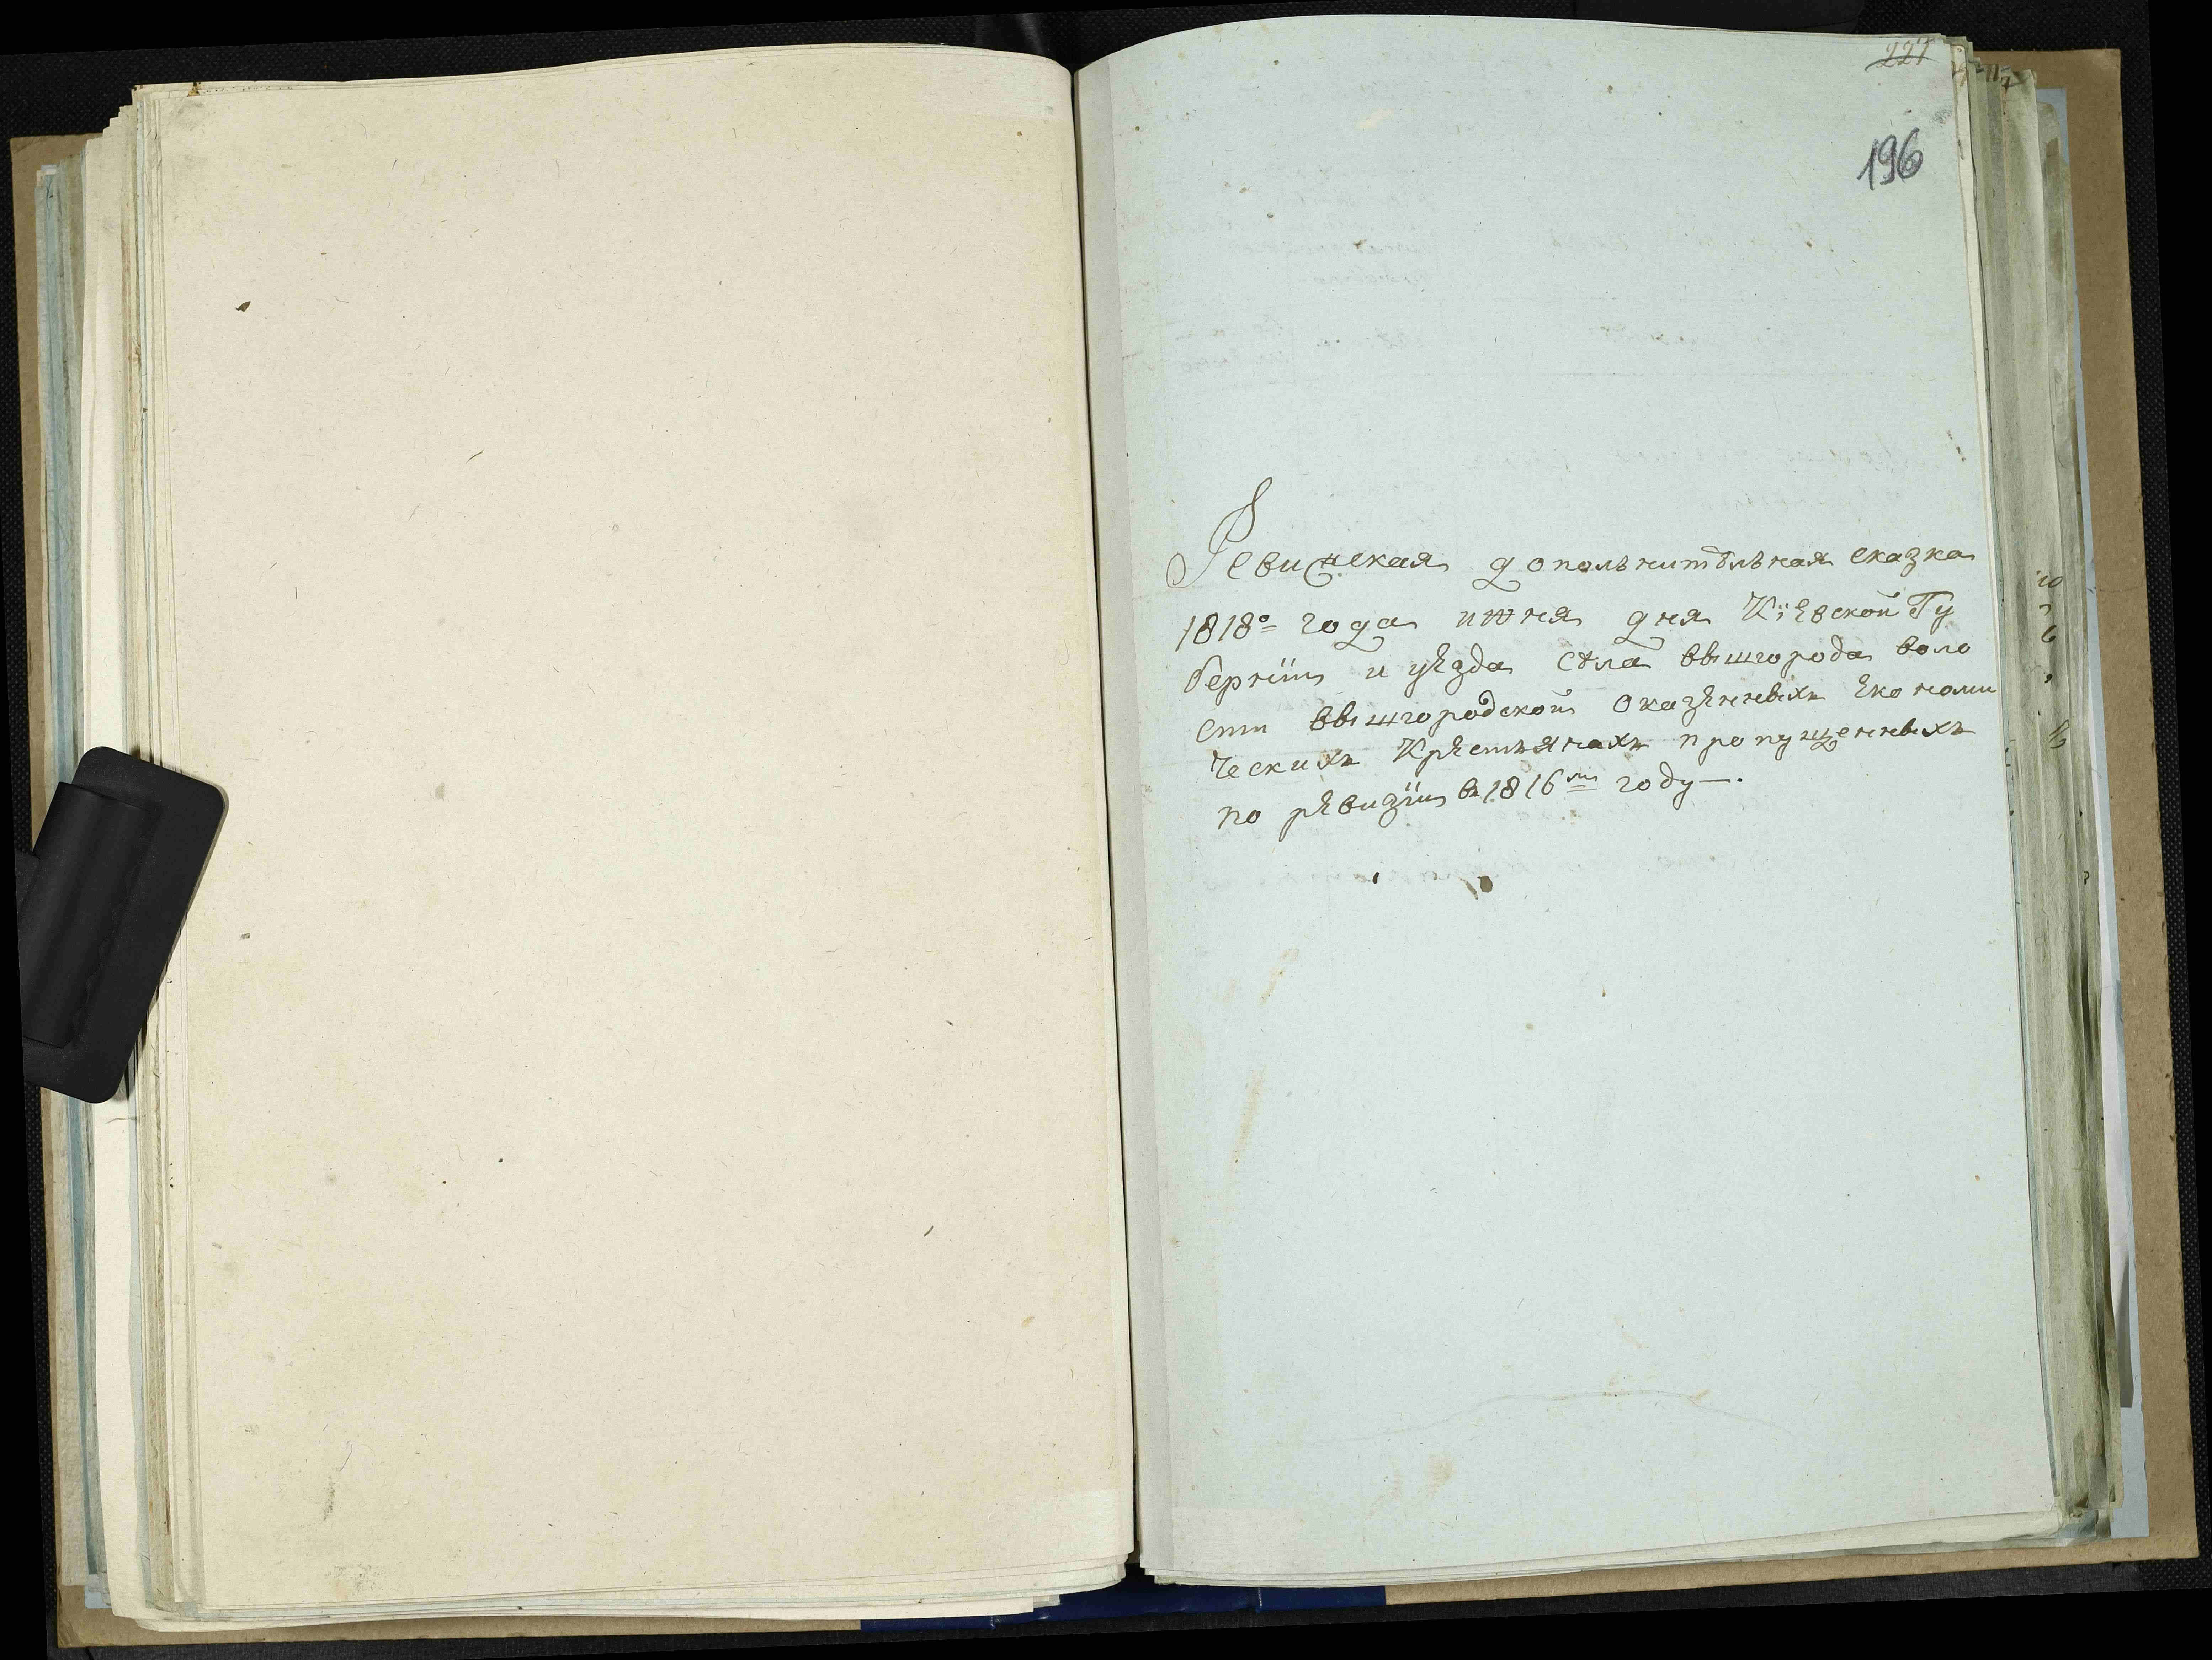 227
196
Ревизская допольнительная сказка
1818го года июня дня Кїевской Гу
бернїи и уезда села вышгорода воло
сти вышгородской оказенныхъ Економи
ческихъ Крестьянахъ пропущенныхъ
по ревизїи въ 1816м году —.